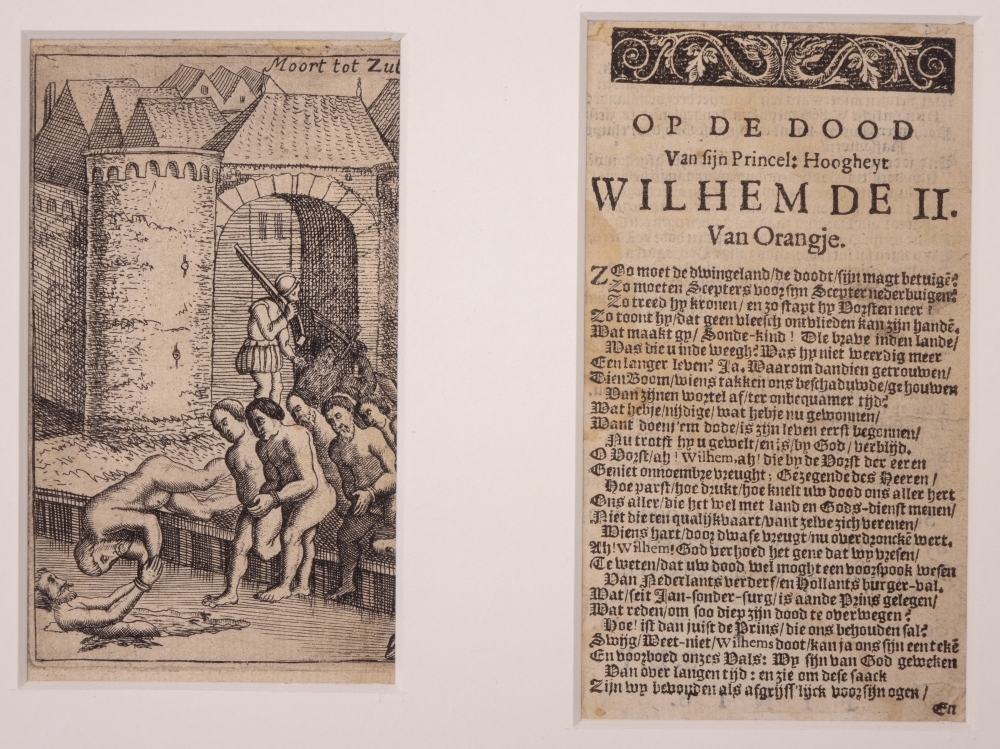 Moort tot Zut
OP DE DOOD
Van sijn Princel: Hoogheyt
WILHEM DE II.
Van Orangje.
ZOo moet de dwingeland/de doodt/sijn magt betuigē?
Zo moeten Scepters voor syn Scepter nederbuigen?
Zo treed hy kronen/ en zo stapt hy Vorsten neer?
Zo toont hy/dat geen vleesch ontvlieden kan zijn handē.
Wat maakt gy/ Sonde-kind! Die brave inden lande/
Was die u inde weegh? Was hy niet weerdig meer
Een langer leven? Ja. Waarom dan dien getrouwen/
Dien Boom/wiens takken ons beschaduwde/gehouwen
Van zijnen wortel af/ter onbequamer tijd?
Wat hebje/nijdige/wat hebje nu gewonnen/
Want doem'em dode/is zijn leven eerst begonnen/
Nu trotst hy u gewelt/en is/by God/verblijd.
O Vorst/ah! Wilhem, ah! die by de Vorst der eeren
Geniet onnoembre vreught; Gezegende des Heeren/
Hoe parst/hoe drukt/hoe knelt uw dood ons aller hert
Ons aller/die het wel met land en Gods-dienst menen/
Niet die ten qualijkvaart/vant zelve zich verenen/
Wiens hart/door dwase vreugt/nu overdronckē wert.
Ah! Wilhem! God verhoed het gene dat wy vresen/
Te weten/dat uw dood wel moght een voorspook wesen
Van Nederlants verderf/en Hollants burger-val.
Wat/seit Jan-sonder-surg/is aande Prins gelegen/
Wat reden/om soo diep zijn dood te overwegen?
Hoe! ist dan juist de Prins/die ons behouden sal?
Swijg/Weet-niet/Wilhems doot/kan ja ons sijn een tekē
En voorboed onzes Vals: Wy sijn van God geweken
Van over langen tijd: en zie om dese saack
Zijn wy bevonden als afgrijss'lijck voor sijn ogen/
En